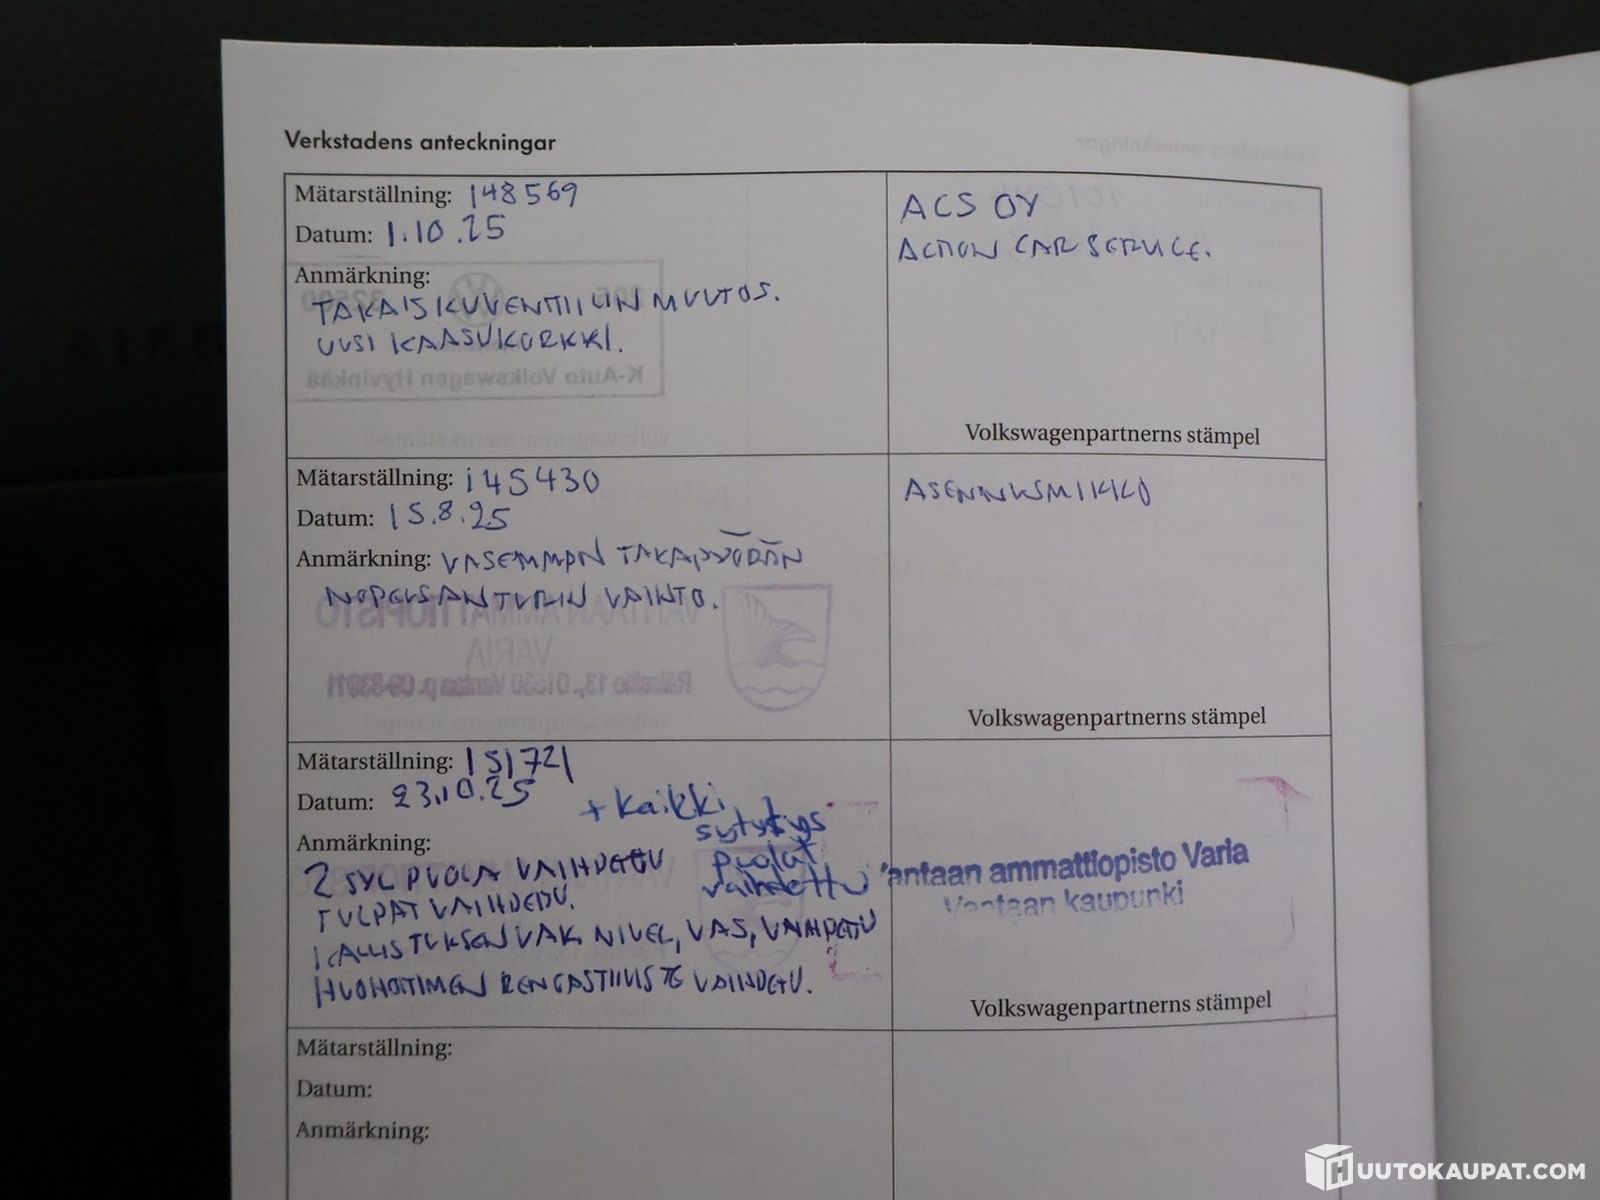 Verkstadens anteckningar
Mätarställning: 148569
Datum: 1.10.25
Anmärkning:
TAKAISKUVENTTIILIN MUUTOS.
UUSI KAASUKORKKI.
ACS OY
ACTION CAR SERVICE.
Volkswagenpartnerns stämpel
K-Auto Volkswagen Hyvinkää
Mätarställning: 145430
Datum: 15.8.25
Anmärkning: VASEMMAN TAKAPYÖRÄN
NOPEUSANTURIN VAIHTO.
ASENNUSMIKKO
VANTAAN AMMATTIOPISTO
VARIA
Volkswagenpartnerns stämpel
Mätarställning: 151721
Datum: 23.10.25
+ kaikki
sytytys
puolat
vaihdettu
Anmärkning:
2 SYL PUOLA VAIHDETTU
TULPAT VAIHDETTU.
KALLISTUKSEN VAK. NIVEL, VAS, VAIHDETTU
HUOHOTTIMEN RENGASTIIVISTE VAIHDETTU.
antaan ammattiopisto Varia
Vantaan kaupunki
Volkswagenpartnerns stämpel
Mätarställning:
Datum:
Anmärkning:
HUUTOKAUPAT.COM